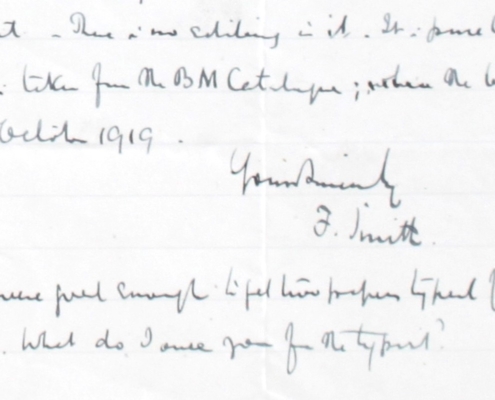 t - There is no editing in it. It is pure
taken from the BM Catalogue; where the
October 1919.
Yours sincerely
F. Smith.
were good enough to get two papers typed
. What do I owe you for the typist?